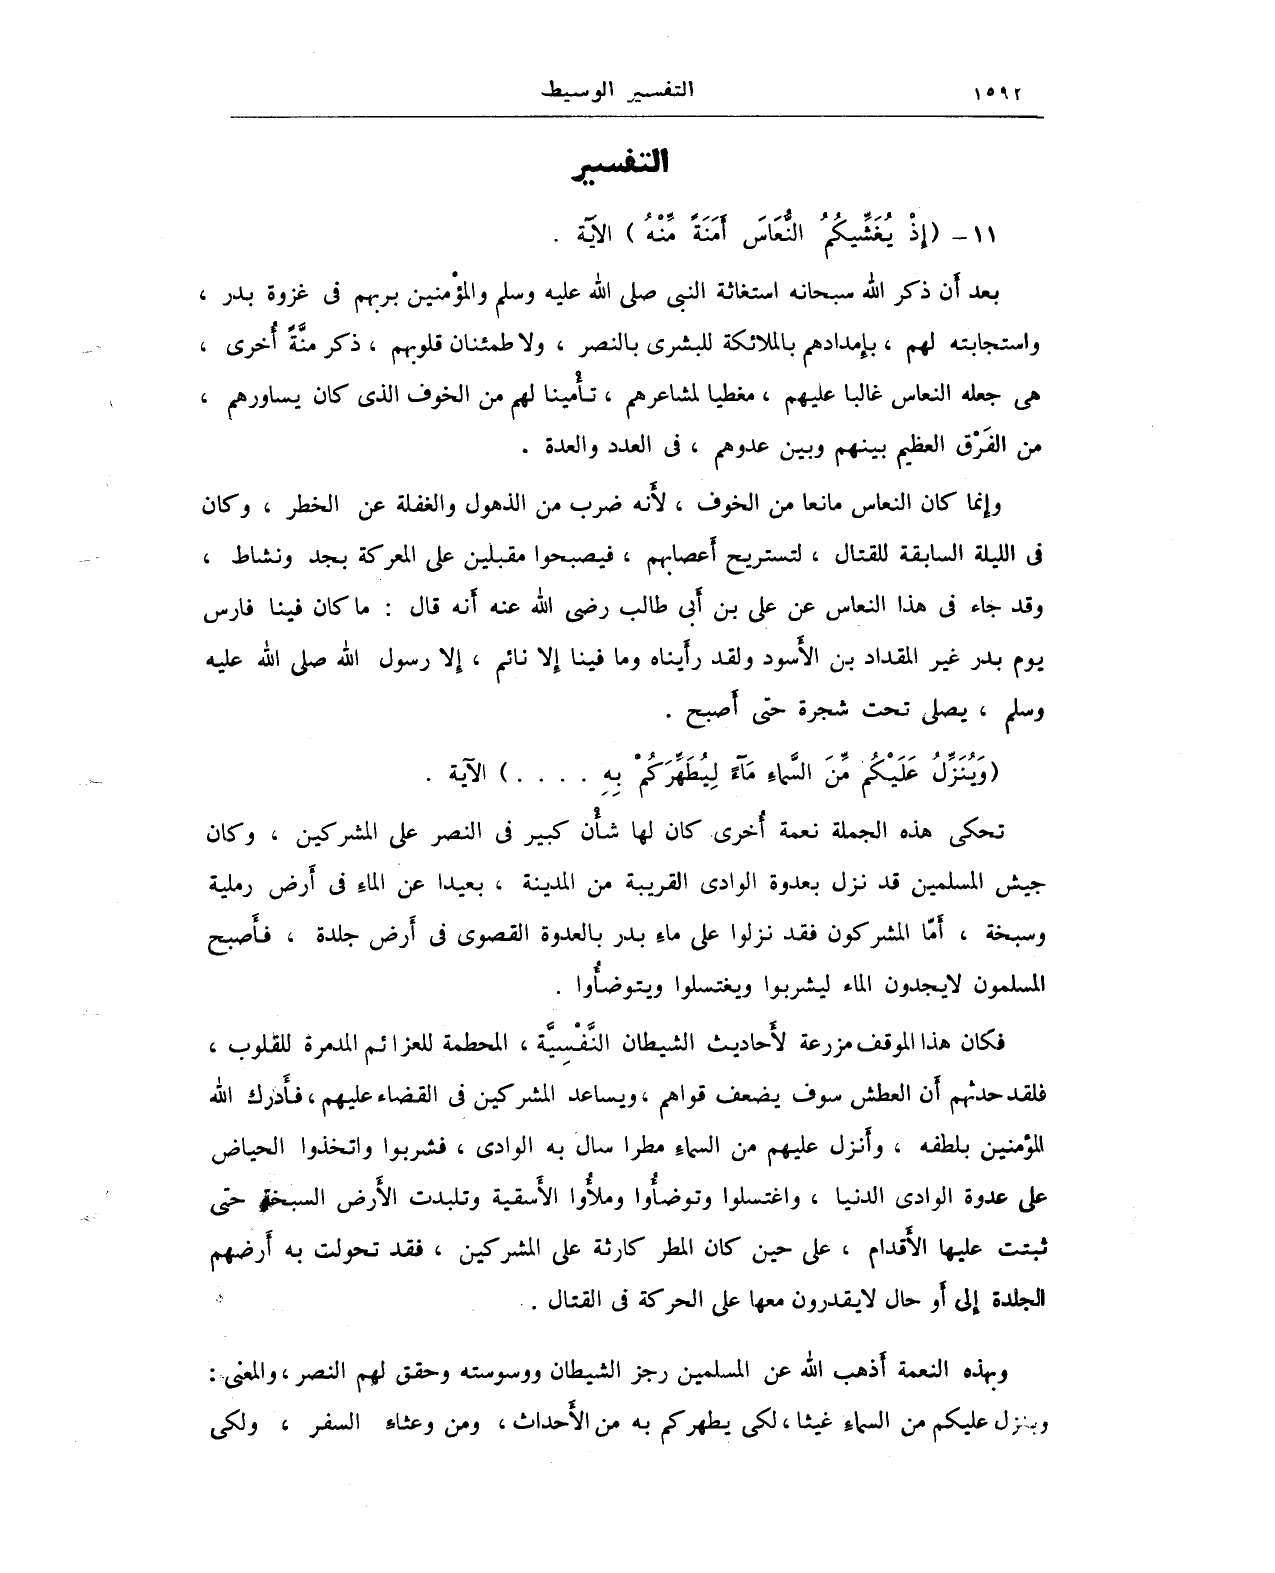 ١٥٩٢ التفسير الوسيط
التفسير
١١ – (إِذْ يُغَشِّيكُمُ النُّعَاسَ أَمَنَةً مِّنْهُ) الآيَة .
بعد أَن ذكر الله سبحانه استغاثة النبى صلى الله عليه وسلم والمؤْمنين بربهم فى غزوة بدر ،
واستجابته لهم ، بإِمدادهم بالملائكة للبشرى بالنصر ، ولاطمئنان قلوبهم ، ذكر منَّةً أُخرى ،
هى جعله النعاس غالبا عليهم ، مغطيا لمشاعرهم ، تأْمينا لهم من الخوف الذى كان يساورهم ،
من الفَرْق العظيم بينهم وبين عدوهم ، فى العدد والعدة .
وإِنما كان النعاس مانعا من الخوف ، لأَنه ضرب من الذهول والغفلة عن الخطر ، وكان
فى الليلة السابقة للقتال ، لتستريح أَعصابهم ، فيصبحوا مقبلين على المعركة بجد ونشاط ،
وقد جاء فى هذا النعاس عن على بن أَبى طالب رضى الله عنه أَنه قال : ما كان فينا فارس
يوم بدر غير المقداد بن الأَسود ولقد رأَيناه وما فينا إِلا نائم ، إِلا رسول الله صلى الله عليه
وسلم ، يصلى تحت شجرة حتى أَصبح .
(وَيُنَزِّلُ عَلَيْكُم مِّنَ السَّمَاءِ مَآءً لِيُطَهِّرَكُمْ بِهِ . . . .) الآية .
تحكى هذه الجملة نعمة أُخرى كان لها شأْن كبير فى النصر على المشركين ، وكان
جيش المسلمين قد نزل بعدوة الوادى القريبة من المدينة ، بعيدا عن الماءِ فى أَرض رملية
وسبخة ، أَمّا المشركون فقد نزلوا على ماءِ بدر بالعدوة القصوى فى أَرض جلدة ، فأَصبح
المسلمون لايجدون الماء ليشربوا ويغتسلوا ويتوضأُوا .
فكان هذا الموقف مزرعة لأَحاديث الشيطان النَّفْسِيَّة ، المحطمة للعزائم المدمرة للقلوب ،
فلقد حدثهم أَن العطش سوف يضعف قواهم ، ويساعد المشركين فى القضاءِ عليهم ، فأَدرك الله
المؤمنين بلطفه ، وأَنزل عليهم من السماءِ مطرا سال به الوادى ، فشربوا واتخذوا الحياض
على عدوة الوادى الدنيا ، واغتسلوا وتوضأُوا وملأُوا الأَسقية وتلبدت الأَرض السبخة حتى
ثبتت عليها الأَقدام ، على حين كان المطر كارثة على المشركين ، فقد تحولت به أَرضهم
الجلدة إِلى أَو حال لايقدرون معها على الحركة فى القتال .
وبهذه النعمة أَذهب الله عن المسلمين رجز الشيطان ووسوسته وحقق لهم النصر ، والمعنى :
وينزل عليكم من السماءِ غيثا ، لكى يطهركم به من الأَحداث ، ومن وعثاء السفر ، ولكى